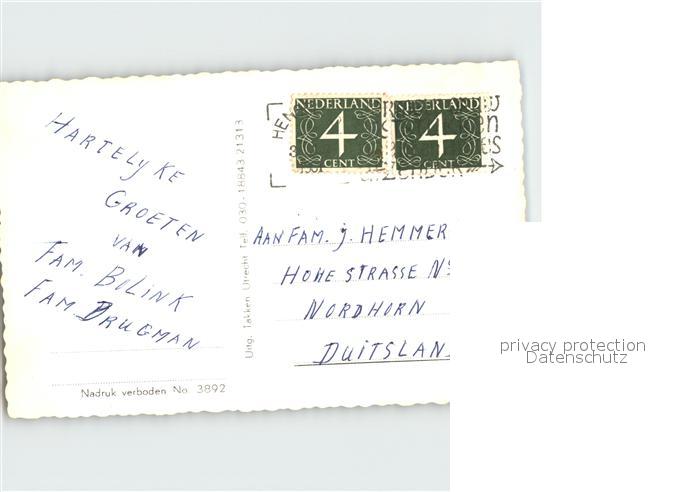 HARTELYKE
GROETEN
VAN
FAM. BOLINK
FAM DRUGMAN
Nadruk verboden No. 3892
Uitg. Takken Utrecht Telf. 030-18843-21313
NEDERLAND
4
CENT
NEDERLAND
4
CENT
AAN FAM. J. HEMMER
HOHE STRASSE No
NORDHORN
DUITSLAN
privacy protection
Datenschutz